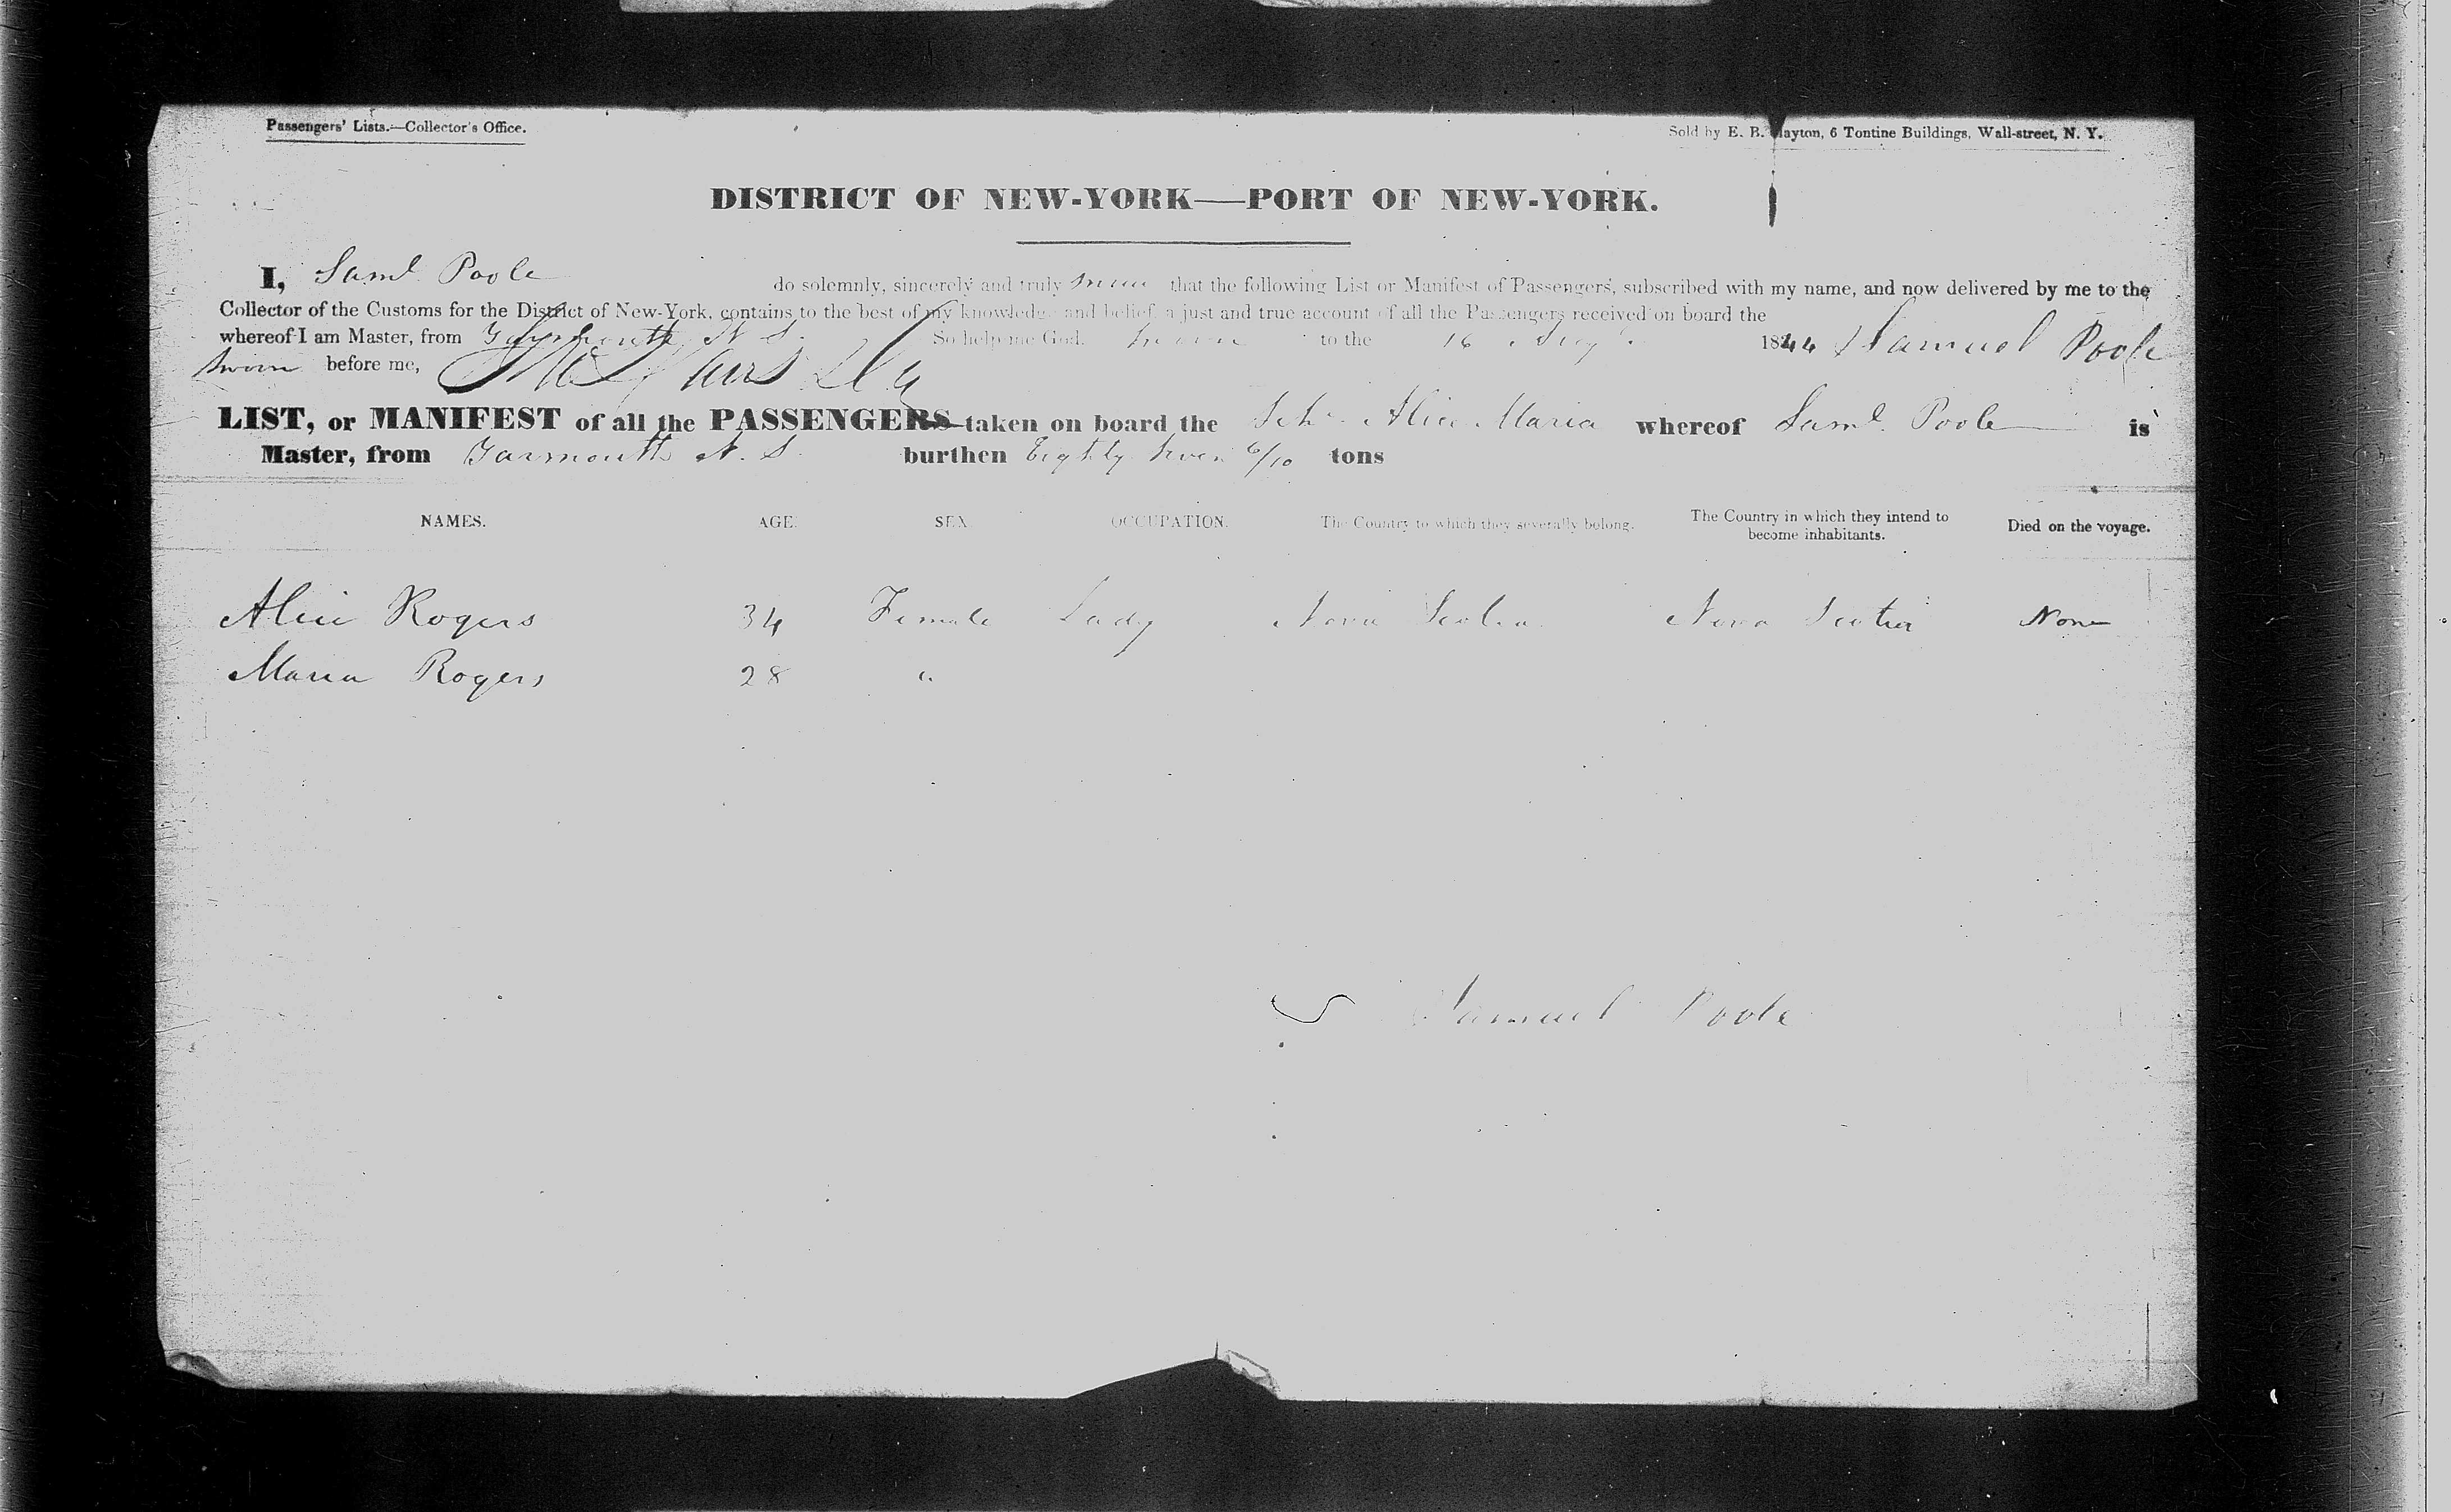 Passengers' Lists.—Collector's Office. Sold by E. B. Clayton, 6 Tontine Buildings, Wall-street, N. Y.
DISTRICT OF NEW-YORK—PORT OF NEW-YORK.
I, Saml. Poole do solemnly, sincerely and truly swear that the following List or Manifest of Passengers, subscribed with my name, and now delivered by me to the
Collector of the Customs for the District of New-York, contains to the best of my knowledge and belief, a just and true account of all the Passengers received on board the
whereof I am Master, from Yarmouth N. S. So help me God. Sworn to the 16 Augt. 1844 Samuel Poole
Sworn before me,
LIST, or MANIFEST of all the PASSENGERS taken on board the Schr. Alice Maria whereof Saml. Poole is
Master, from Yarmouth N. S. burthen Eighty Seven 6/10 tons
NAMES. AGE. SEX. OCCUPATION. The Country to which they severally belong. The Country in which they intend to become inhabitants. Died on the voyage.
Alice Rogers 34 Female Lady Nova Scotia Nova Scotia None
Maria Rogers 28 "
Samuel Poole